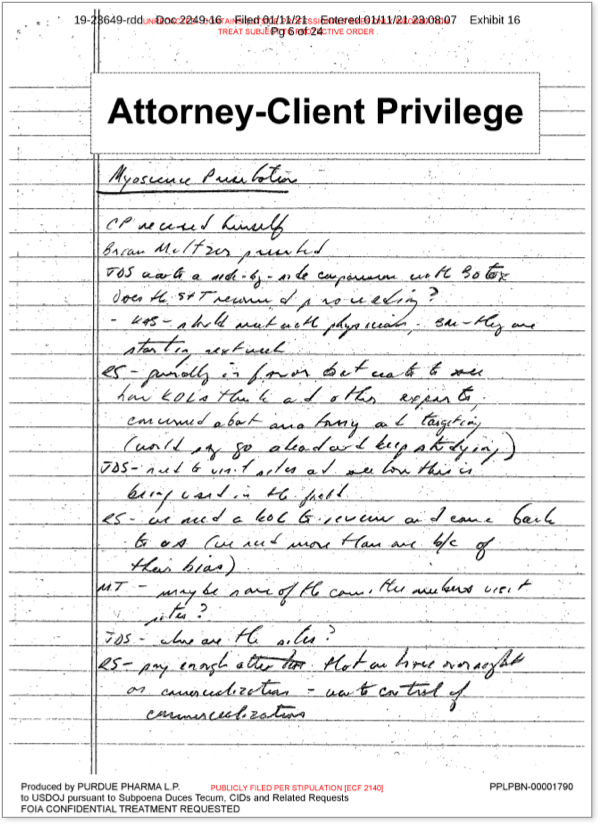 19-23649-rdd Doc 2249-16 Filed 01/11/21 Entered 01/11/21 23:08:07 Exhibit 16
Pg 6 of 24
TREAT SUBJECT TO PROTECTIVE ORDER
Attorney-Client Privilege
Myoscience Presentation
CP recused himself
Brian Meltzer presented
JDS wants a side-by-side comparison with Botox
Does the S&T recommend proceeding?
- - should meet with physicians. - they are
starting next week
RS - generally in favor but wants to see
how KOLs think and other experts,
concerned about anatomy and targeting
(would say go ahead and keep studying)
JDS - need to visit sites and see how this is
being used in the field
RS - we need a KOL to review and come back
to us (we need more than one b/c of
their bias)
MT - maybe some of the committee members visit
sites?
JDS - where are the sites?
RS - pay enough that we have oversight
on commercialization - want control of
commercialization
Produced by PURDUE PHARMA L.P.
PUBLICLY FILED PER STIPULATION [ECF 2140]
PPLPBN-00001790
to USDOJ pursuant to Subpoena Duces Tecum, CIDs and Related Requests
FOIA CONFIDENTIAL TREATMENT REQUESTED